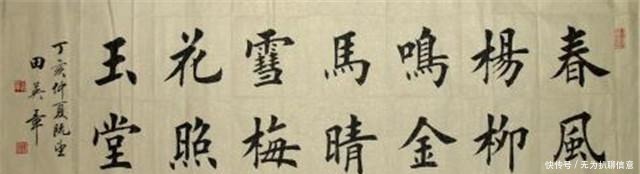 春風
楊柳
鳴金
馬晴
雪梅
花照
玉堂
丁亥仲夏
田英章
快传号 / 无为抗聊信息